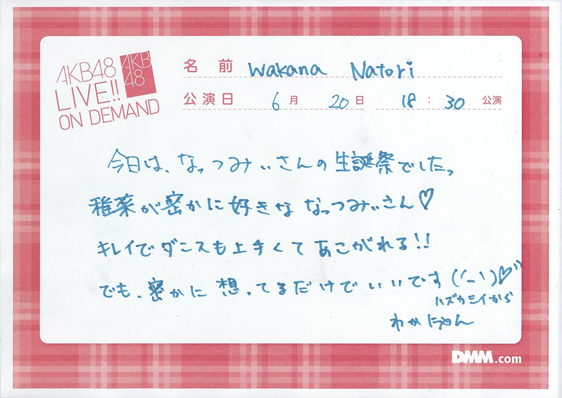 AKB48
LIVE!!
ON DEMAND
AKB
48
名前 Wakana Natori
公演日 6月 20日 18:30 公演
今日は、なっつみぃさんの生誕祭でしたっ
稚菜が密かに好きな なっつみぃさん♡
キレイでダンスも上手くて あこがれる!!
でも、密かに想ってるだけでいいです((´-`)♡"
ハズカシイから
わかにゃん
DMM.com